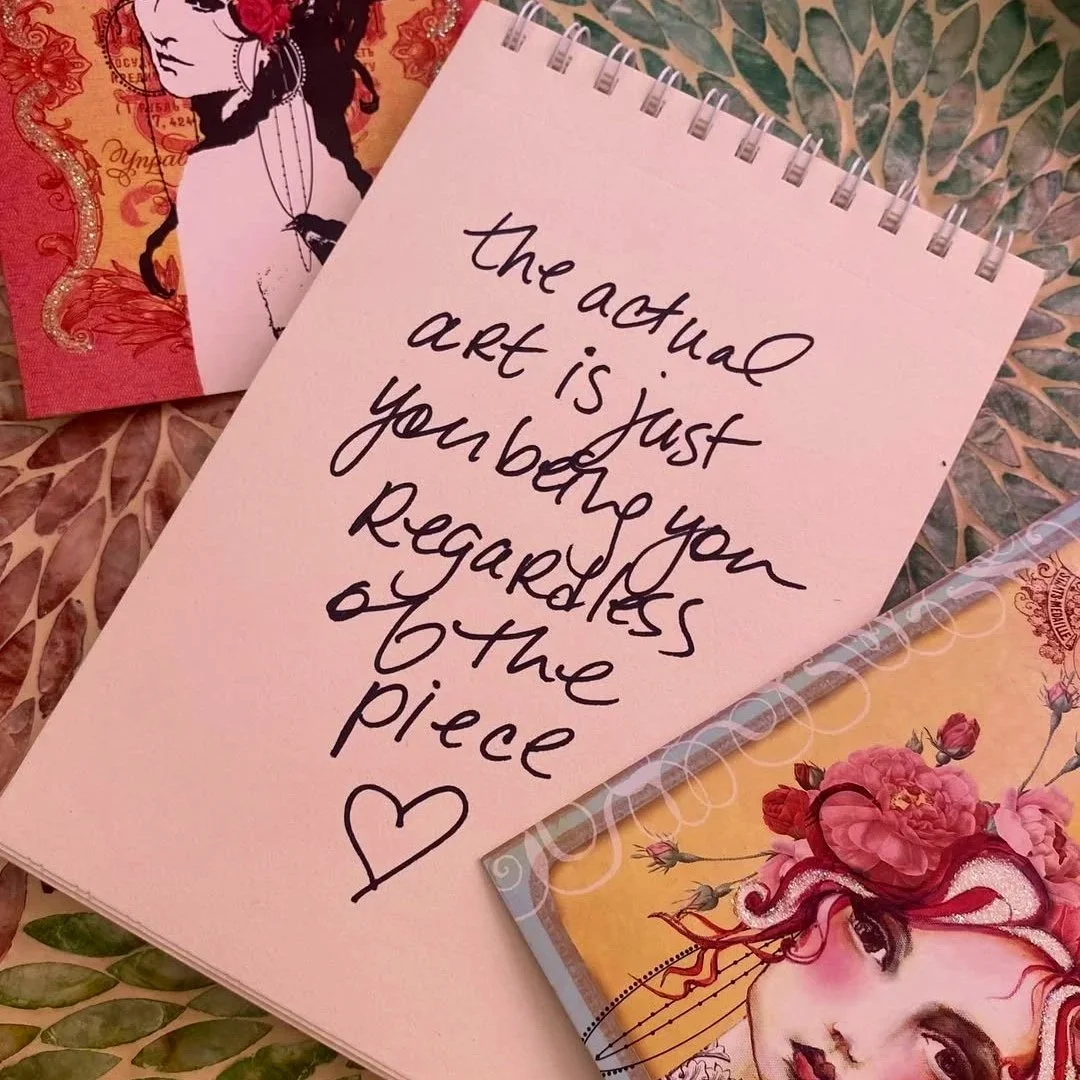 the actual
art is just
you being you
Regardless
of the
piece